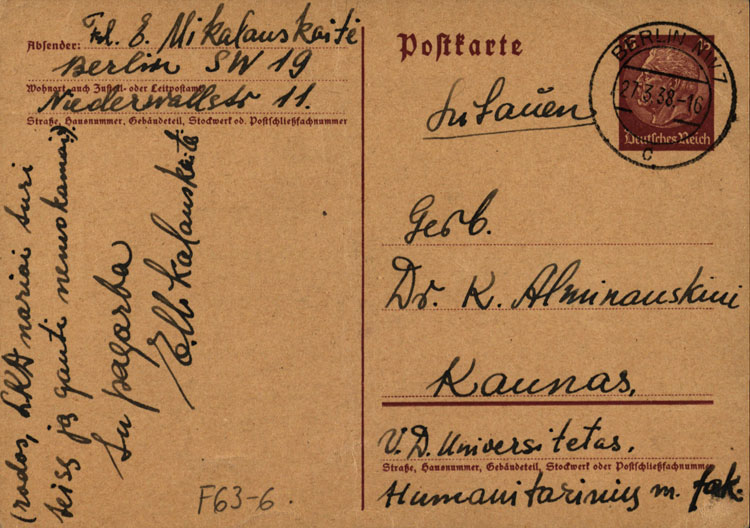 Absender: Frl. E. Mikalauskaitė
Berlin SW 19
Wohnort, auch Zustell- oder Leitpostamt
Niederwallstr 11.
Straße, Hausnummer, Gebäudeteil, Stockwerk od. Postschließfachnummer
(rodos, LKD nariai turi
teisę ją gauti nemokamai).
Su pagarba
E. Mikalauskaitė
F63-6.
Postkarte
BERLIN NW7
27.3.38.-16
c
Deutsches Reich
Litauen
Gerb.
Dr. K. Alminauskiui
Kaunas,
V. D. Universitetas.
Straße, Hausnummer, Gebäudeteil, Stockwerk oder Postschließfachnummer
Humanitarinių m. fak.